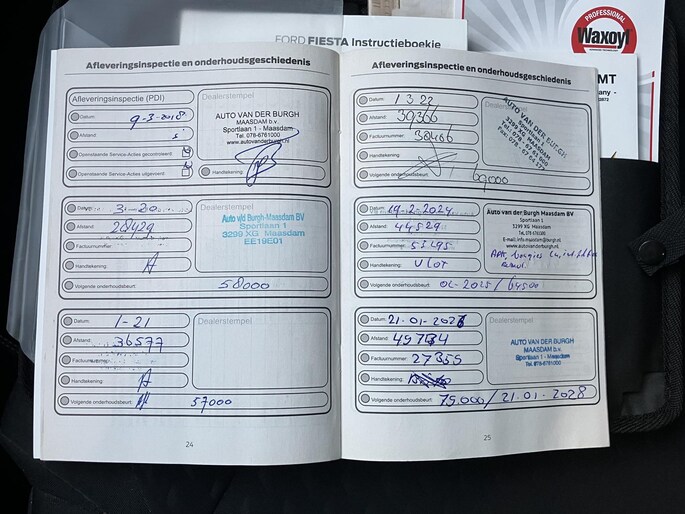 FORD FIESTA Instructieboekje
PROFESSIONAL
Waxoyl
Afleveringsinspectie en onderhoudsgeschiedenis
Afleveringsinspectie (PDI)
Datum: 9-3-2018
Afstand: 5
Openstaande Service-Acties gecontroleerd
Openstaande Service-Acties uitgevoerd
Dealerstempel
AUTO VAN DER BURGH
MAASDAM b.v.
Sportlaan 1 - Maasdam
Tel. 078-6761000
www.autovanderburgh.nl
Handtekening:
Datum: 3-20
Afstand: 28429
Factuurnummer:
Handtekening:
Volgende onderhoudsbeurt: 58000
Auto v/d Burgh-Maasdam BV
Sportlaan 1
3299 XG Maasdam
EE19E01
Datum: 1-21
Afstand: 36577
Factuurnummer:
Handtekening:
Volgende onderhoudsbeurt: 57000
Dealerstempel
24
Afleveringsinspectie en onderhoudsgeschiedenis
Datum: 1 3 22
Afstand: 39366
Factuurnummer: 38466
Handtekening:
Volgende onderhoudsbeurt: 69000
AUTO VAN DER BURGH
MAASDAM b.v.
Sportlaan 1
3299 XG MAASDAM
Datum: 19-2-2024
Afstand: 44529
Factuurnummer: 53495
Handtekening: VLOT
Volgende onderhoudsbeurt: 02-2025 / 64500
Auto van der Burgh Maasdam BV
Sportlaan 1
3299 XG Maasdam
Tel. 078 6761000
E-mail: info.maasdam@burgh.nl
www.autovanderburgh.nl
APK, bougies
Datum: 21-01-202
Afstand: 49734
Factuurnummer: 27355
Handtekening:
Volgende onderhoudsbeurt: 75.000 / 21.01.2028
Dealerstempel
AUTO VAN DER BURGH
MAASDAM b.v.
Sportlaan 1 - Maasdam
Tel. 078-6761000
25